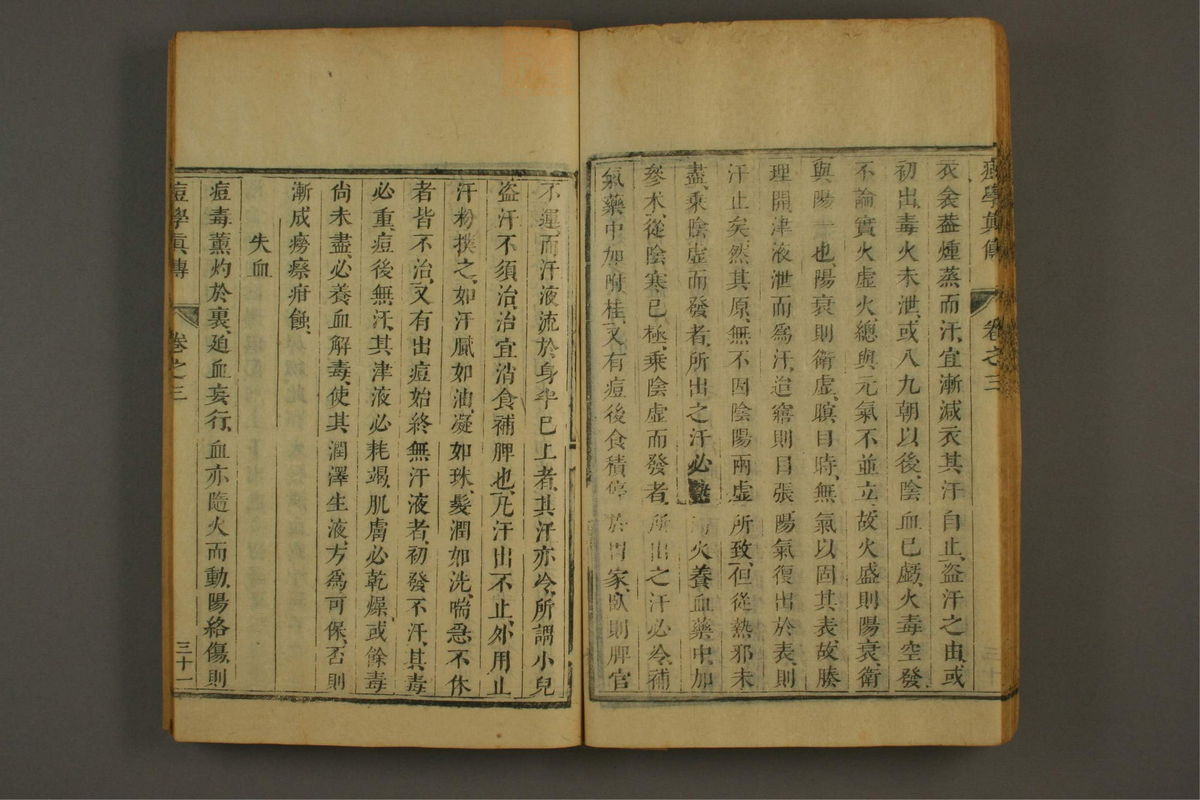 痘學真傳 卷之三
衣衾蓋煙蒸而汗、宜漸減衣其汗自止、盜汗之由、或
初出、毒火未泄、或八九朝以後、陰血已虧、火毒空發、
不論實火虛火、總與元氣不並立、故火盛則陽衰、衛
與陽一也、陽衰則衛虛、瞑目時、無氣以固其表、故腠
理開、津液泄而爲汗、迨寤則目張、陽氣復出於表、則
汗止矣、然其原、無不因陰陽兩虛所致、但從熱邪未
盡、乘陰虛而發者、所出之汗必熱、火養血藥中、加
參朮、從陰寒已極、乘陰虛而發者、所出之汗必冷、補
氣藥中加附桂、又有痘後食積停於胃家、臥則脾官
不運而汗液流於身半已上者、其汗亦冷、所謂小兒
盜汗不須治、治宜消食補脾也、凡汗出不止、外用止
汗粉撲之、如汗膩如油、凝如珠、髮潤如洗、喘急不休
者、皆不治、又有出痘始終無汗液者、初發不汗、其毒
必重、痘後無汗、其津液必耗竭、肌膚必乾燥、或餘毒
尚未盡、必養血解毒、使其潤澤生液、方爲可保、否則
漸成癆瘵疳蝕、
失血
痘毒薰灼於裏、迫血妄行、血亦隨火而動、陽絡傷、則
痘學真傳 卷之三 三十一